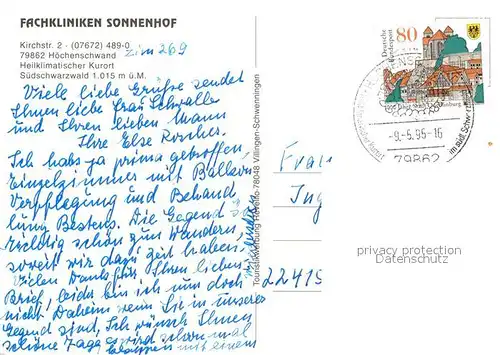 FACHKLINIKEN SONNENHOF
Kirchstr. 2 - (07672) 489-0
Zim 269
79862 Höchenschwand
Heilklimatischer Kurort
Südschwarzwald 1.015 m ü.M.
Viele liebe Grüße sendet
Ihnen liebe Frau Schwalle
und Ihren lieben Mann
Ihre Else
Ich habs ja prima getroffen,
Einzelzimmer mit Balkon
Verpflegung und Behand
lung Bestens. Die Gegend
richtig schön zum Wandern,
soweit wir dazu Zeit haben.
Vielen Dank für Ihren lieben
Brief, leider bin ich nun doch
nicht Daheim wenn Sie in unserer
Gegend sind, Ich wünsch Ihnen
schöne Tage
klappen mit einem
Wiedersehen
Touristikwerbung 78048 Villingen-Schwenningen
Deutsche Bundespost
80
-9.-5.95-16
79862
Frau
Ing
22419
privacy protection
Datenschutz